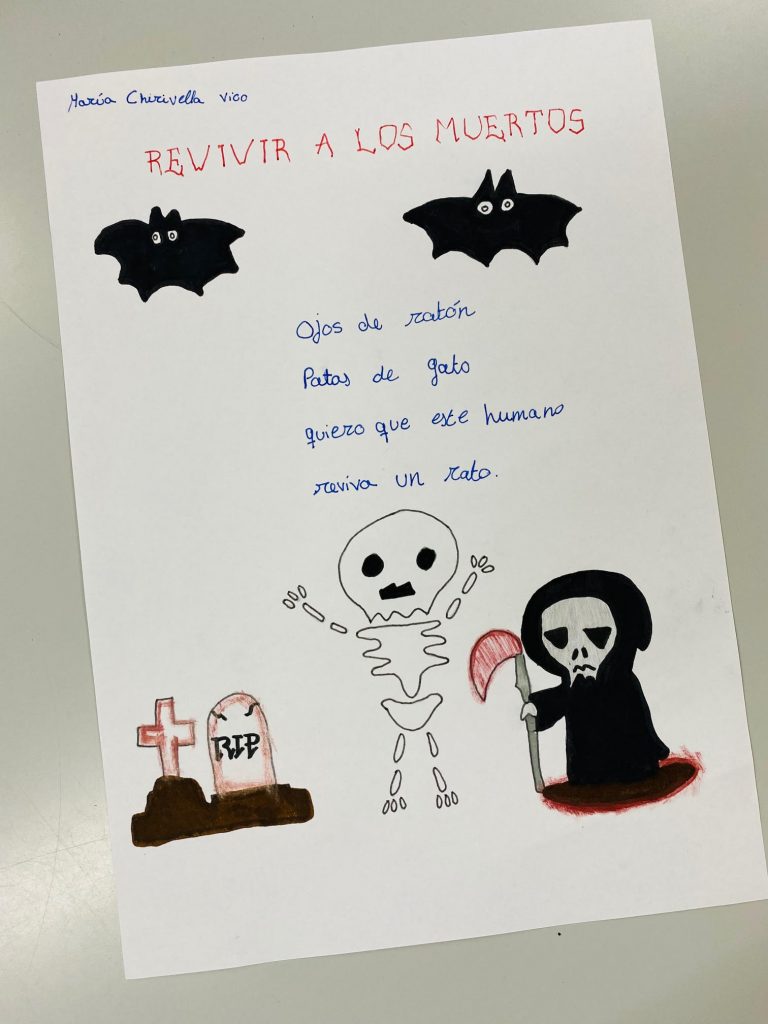 María Chirivella Vico
REVIVIR A LOS MUERTOS
Ojos de ratón
Patas de gato
quiero que este humano
reviva un rato.
RIP